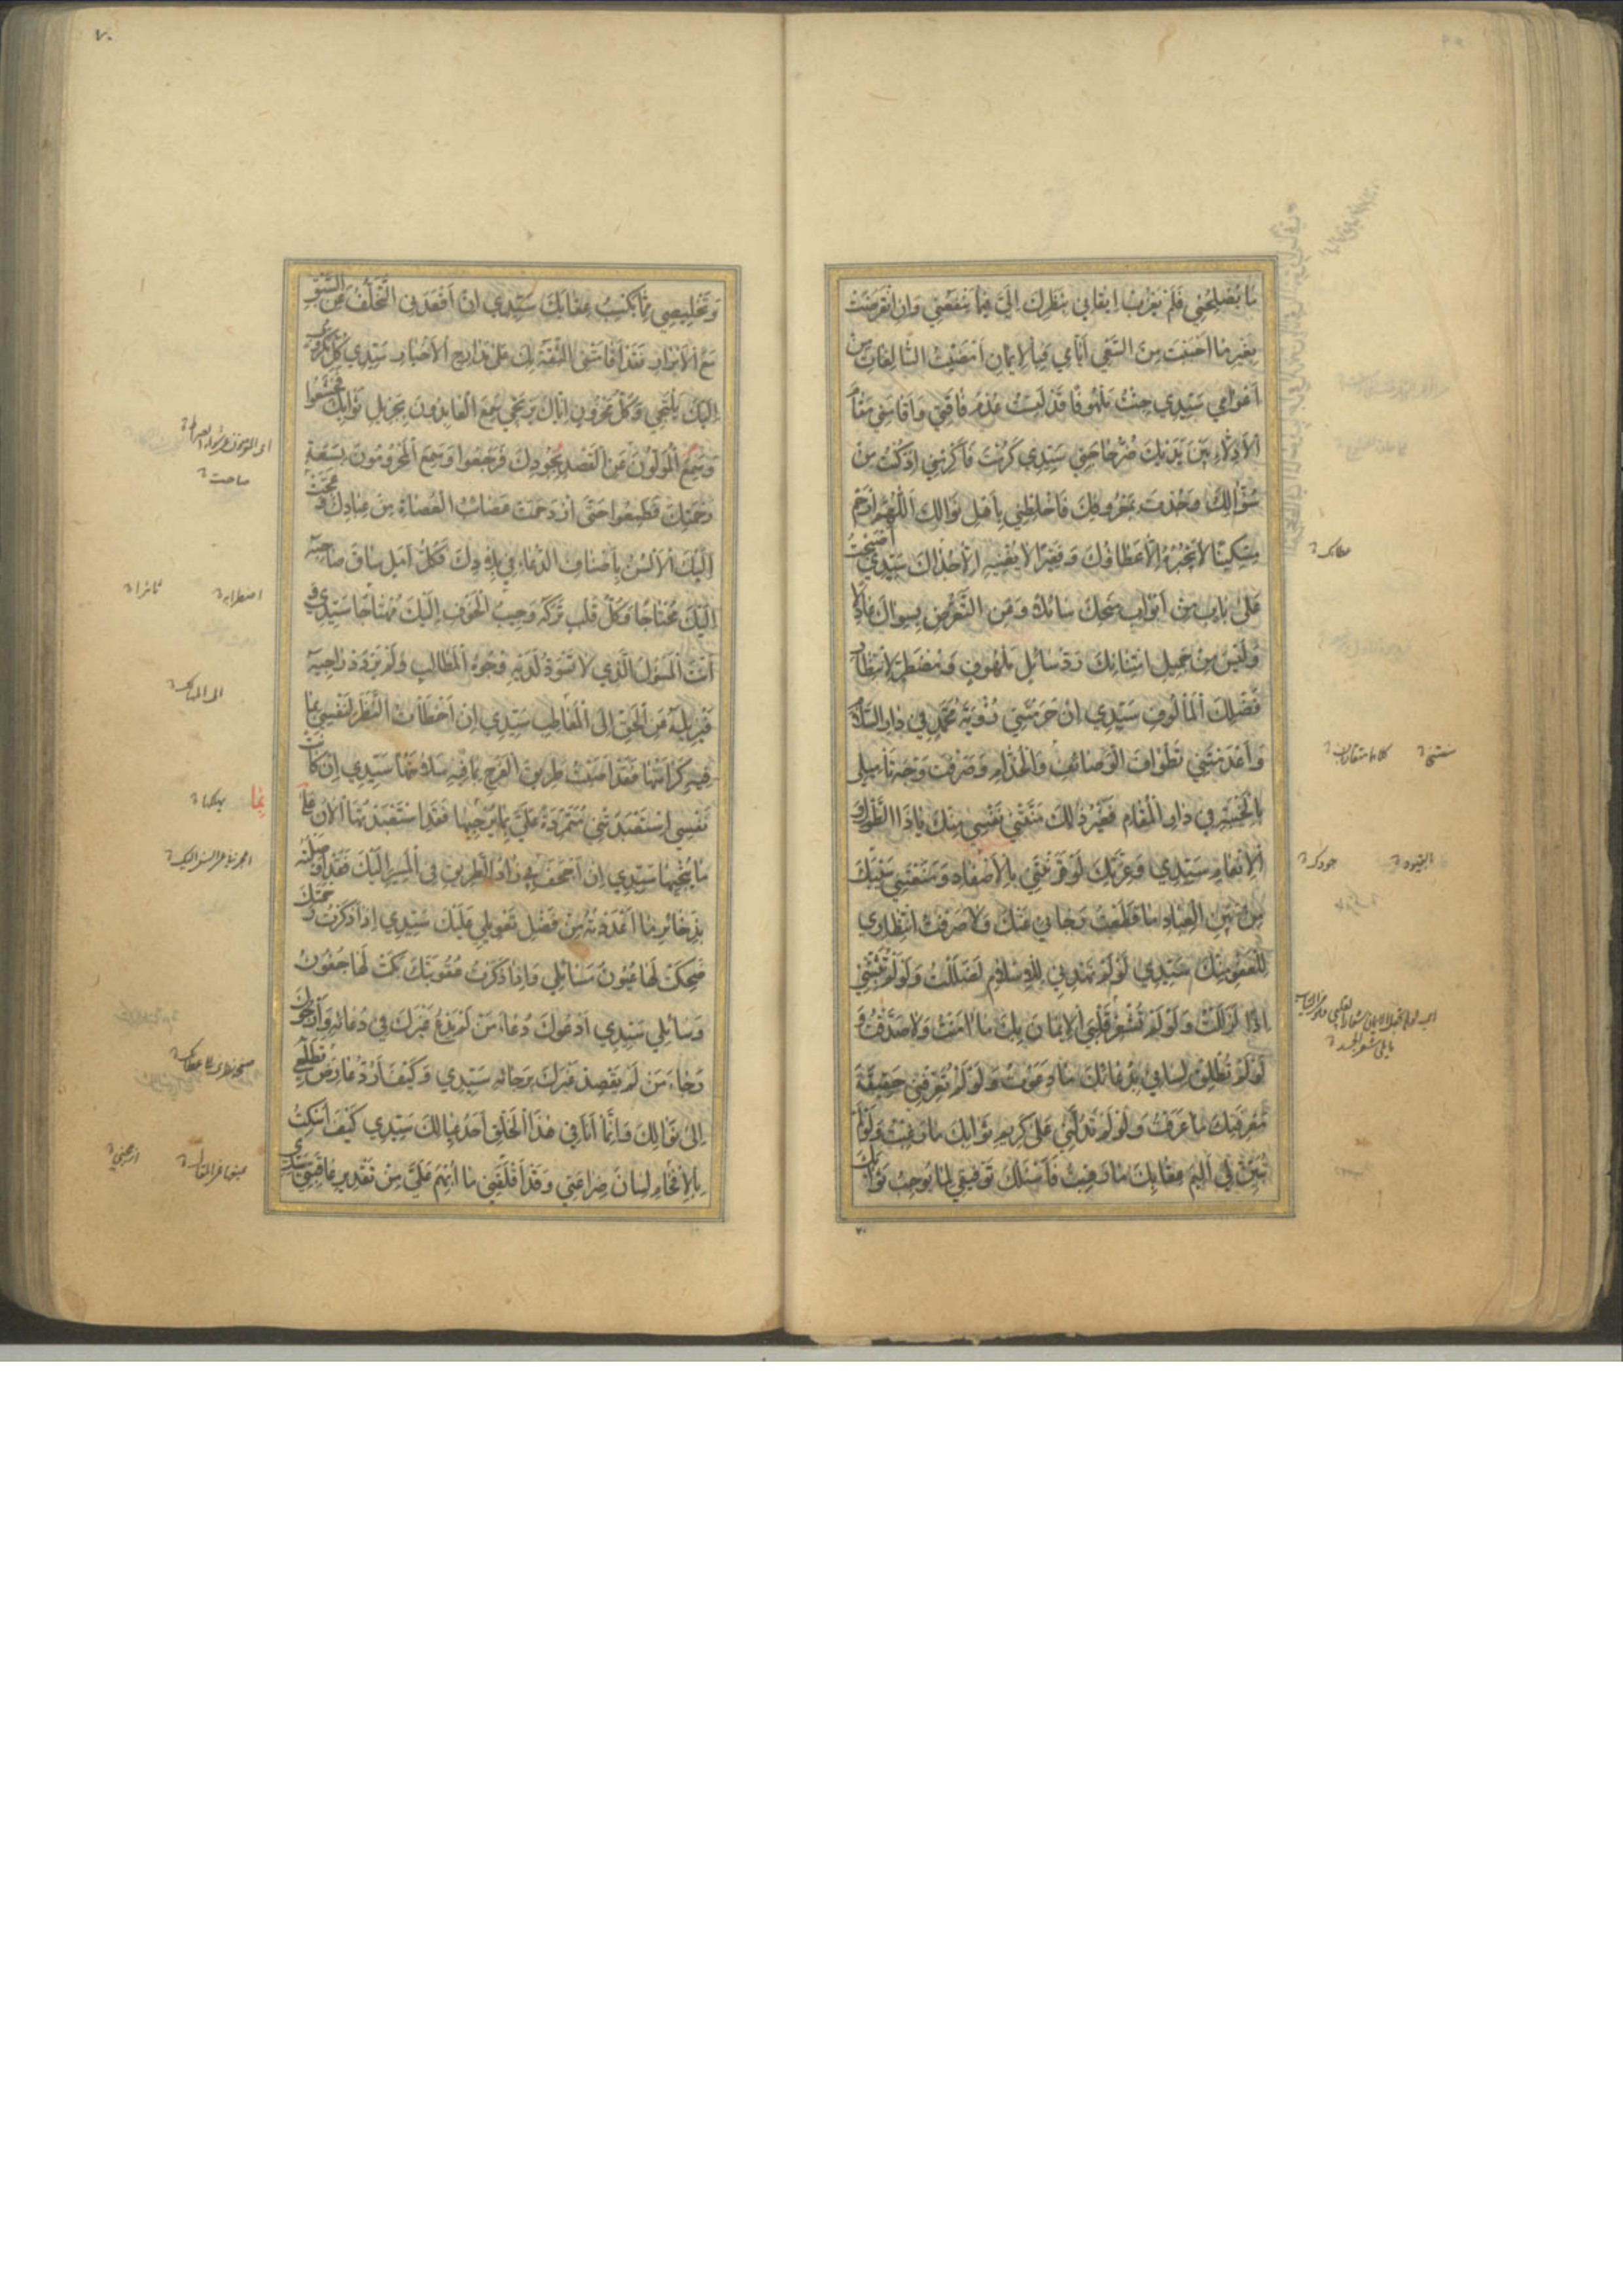 ما يصلحني فلم يغرب ايقاني بنظرك الي فيما ينفعني وان انقرضت
بغير ما احببت من السعي ايامي فبالايمان امضيت السالفات من
اعوامي سيدي جئت ملهوفا قد لبست عدم فاقتي واقامني مقام
الاذلاء بين يديك ضر حاجتي سيدي كرمت فاكرمني اذ كنت من
سؤالك وجدت بمعروفك فاخلطني باهل نوالك اللهم ارحم
مسكينا لا يجيره الا عطاؤك وفقيرا لا يغنيه الا جدواك سيدي اصبحت
على باب من ابواب منحك سائلا وعن التعرض بسواك عادلا
وليس من جميل امتنانك رد سائل ملهوف ومضطر لانتظار
فضلك المألوف سيدي ان حرمتني رؤية محمد في دار السلام
واعدمتني تطواف الوصائف والخدام وصرفت وجه تاميلي
بالخيبة في دار المقام فغير ذلك منتني نفسي منك ياذا الطول و
الانعام سيدي وعزتك لو قرنتني بالاصفاد ومنعتني سيبك
من بين العباد ما قطعت رجائي عنك ولا صرفت انتظاري
للعفو منك سيدي لو لم تهدني للاسلام لضللت ولو لم تثبتني
اذا لزللت ولو لم تشعر قلبي الايمان بك ما امنت ولا صدقت و
لو لم تطلق لساني بدعائك ما دعوت ولو لم تعرفني حقيقة
معرفتك ما عرفت ولو لم تدلني على كريم ثوابك ما رغبت ولو لم
تبين لي اليم عقابك ما رهبت فاسئلك توفيقي لما يوجب ثوابك
عطائك
القيود
جودك
٧٠
٧٠
وتخليصي مما يكسب عقابك سيدي ان اقعدني التخلف عن السبق
مع الابرار فقد اقامتني الثقة بك على مدارج الاخيار سيدي كل مكروب
اليك يلتجي وكل محزون اياك يرتجي سمع العابدون بجزيل ثوابك فخشعوا
وسمع المولون عن القصد بجودك فرجعوا وسمع المحرومون بسعة
رحمتك فطمعوا حتى ازدحمت عصائب العصاة من عبادك وعجت
اليك الالسن باصناف الدعاء في بلادك فكل امل ساق صاحبه
اليك محتاجا وكل قلب تركه وجيب الخوف اليك مهتاجا سيدي و
انت المسؤل الذي لا تسود لديه وجوه المطالب ولم يردد راجيه
فيزيله عن الحق الى المعاطب سيدي ان اخطأت النظر لنفسي بما
فيه كرامتها فقد اصبت طريق الفرج بما فيه سلامتها سيدي ان كانت
نفسي استعبدتني متمردة علي بما يرجيها فقد استعبدتها الان على
ما ينجيها سيدي ان اجحف بي زاد الطريق في المسير اليك فقد اوصلته
بذخائر ما اعددته من فضل تعويلي عليك سيدي اذا ذكرت رحمتك
ضحكت لها عيون مسائلي واذا ذكرت عقوبتك بكت لها جفون
وسائلي سيدي ادعوك دعاء من لم يدع غيرك في دعائه وارجوك
رجاء من لم يقصد غيرك برجائه سيدي وكيف ارد عارض تطلعي
الى نوالك وانما انا في هذا الخلق احد عيالك سيدي كيف اسكت
بالافحام لسان ضراعتي وقد اقلقني ما ابهم علي من تقدير عاقبتي سيدي
صاحت
اضطرابه
ثائرا
الى المهالك
بما
يهلكها